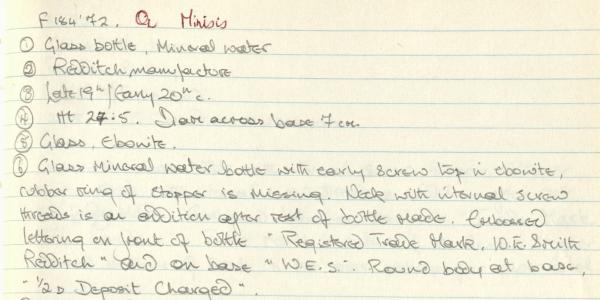 F 184'72. On Minisis
① Glass bottle, Mineral water
② Redditch manufacture
③ Late 19th/Early 20th c.
④ Ht 27.5. Diam across base 7cm.
⑤ Glass, Ebonite.
⑥ Glass Mineral water bottle with early screw top in ebonite,
rubber ring of stopper is missing. Neck with internal screw
threads is an addition after rest of bottle made. Embossed
lettering on front of bottle "Registered Trade Mark. W.E. Smith
Redditch" and on base "W.E.S." Round body at base,
"½D Deposit Charged".